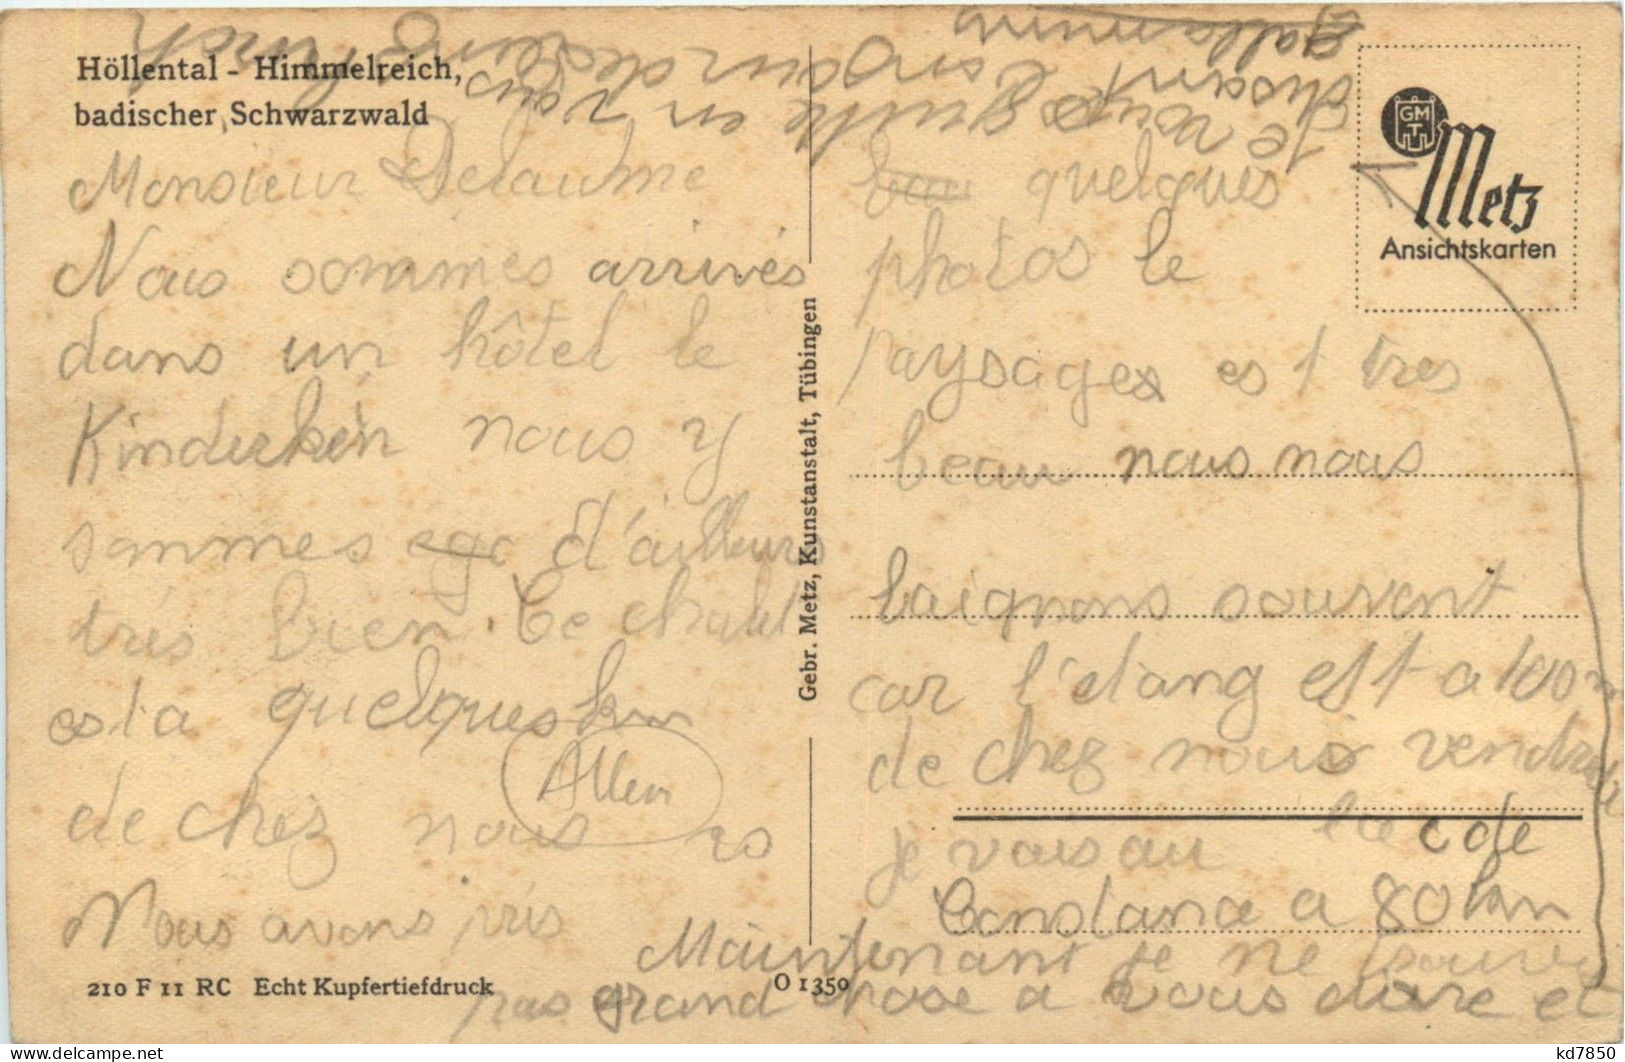 Höllental - Himmelreich,
badischer Schwarzwald
Monsieur Delaume
Nous sommes arrivés
dans un hôtel le
nous y
sommes d'ailleurs
très bien. Ce chalet
est a quelques km
de chez nous
Nous avons pris
quelques
photos le
paysages est tres
beau nous nous
baignons souvent
car l'etang est a 100 m
de chez nous vendredi
je vais au lac de
Constance a 80 km
Maintenant je ne
pas grand chose a vous dire et
je vous quitte en vous
disant
Metz
Ansichtskarten
GMT
Gebr. Metz, Kunstanstalt, Tübingen
210 F 11 RC Echt Kupfertiefdruck
O 1350
kd7850